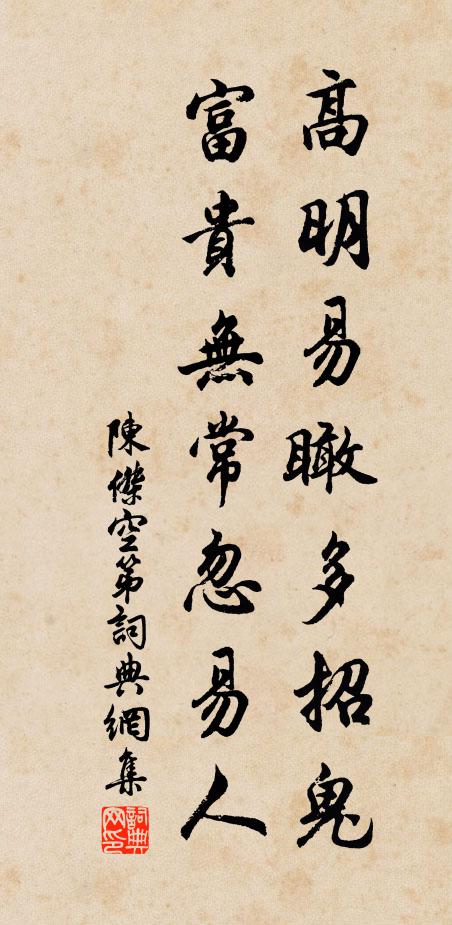 高明易瞰多招鬼
富貴無常忽易人
陳傑空第詞典網集
詞典网印